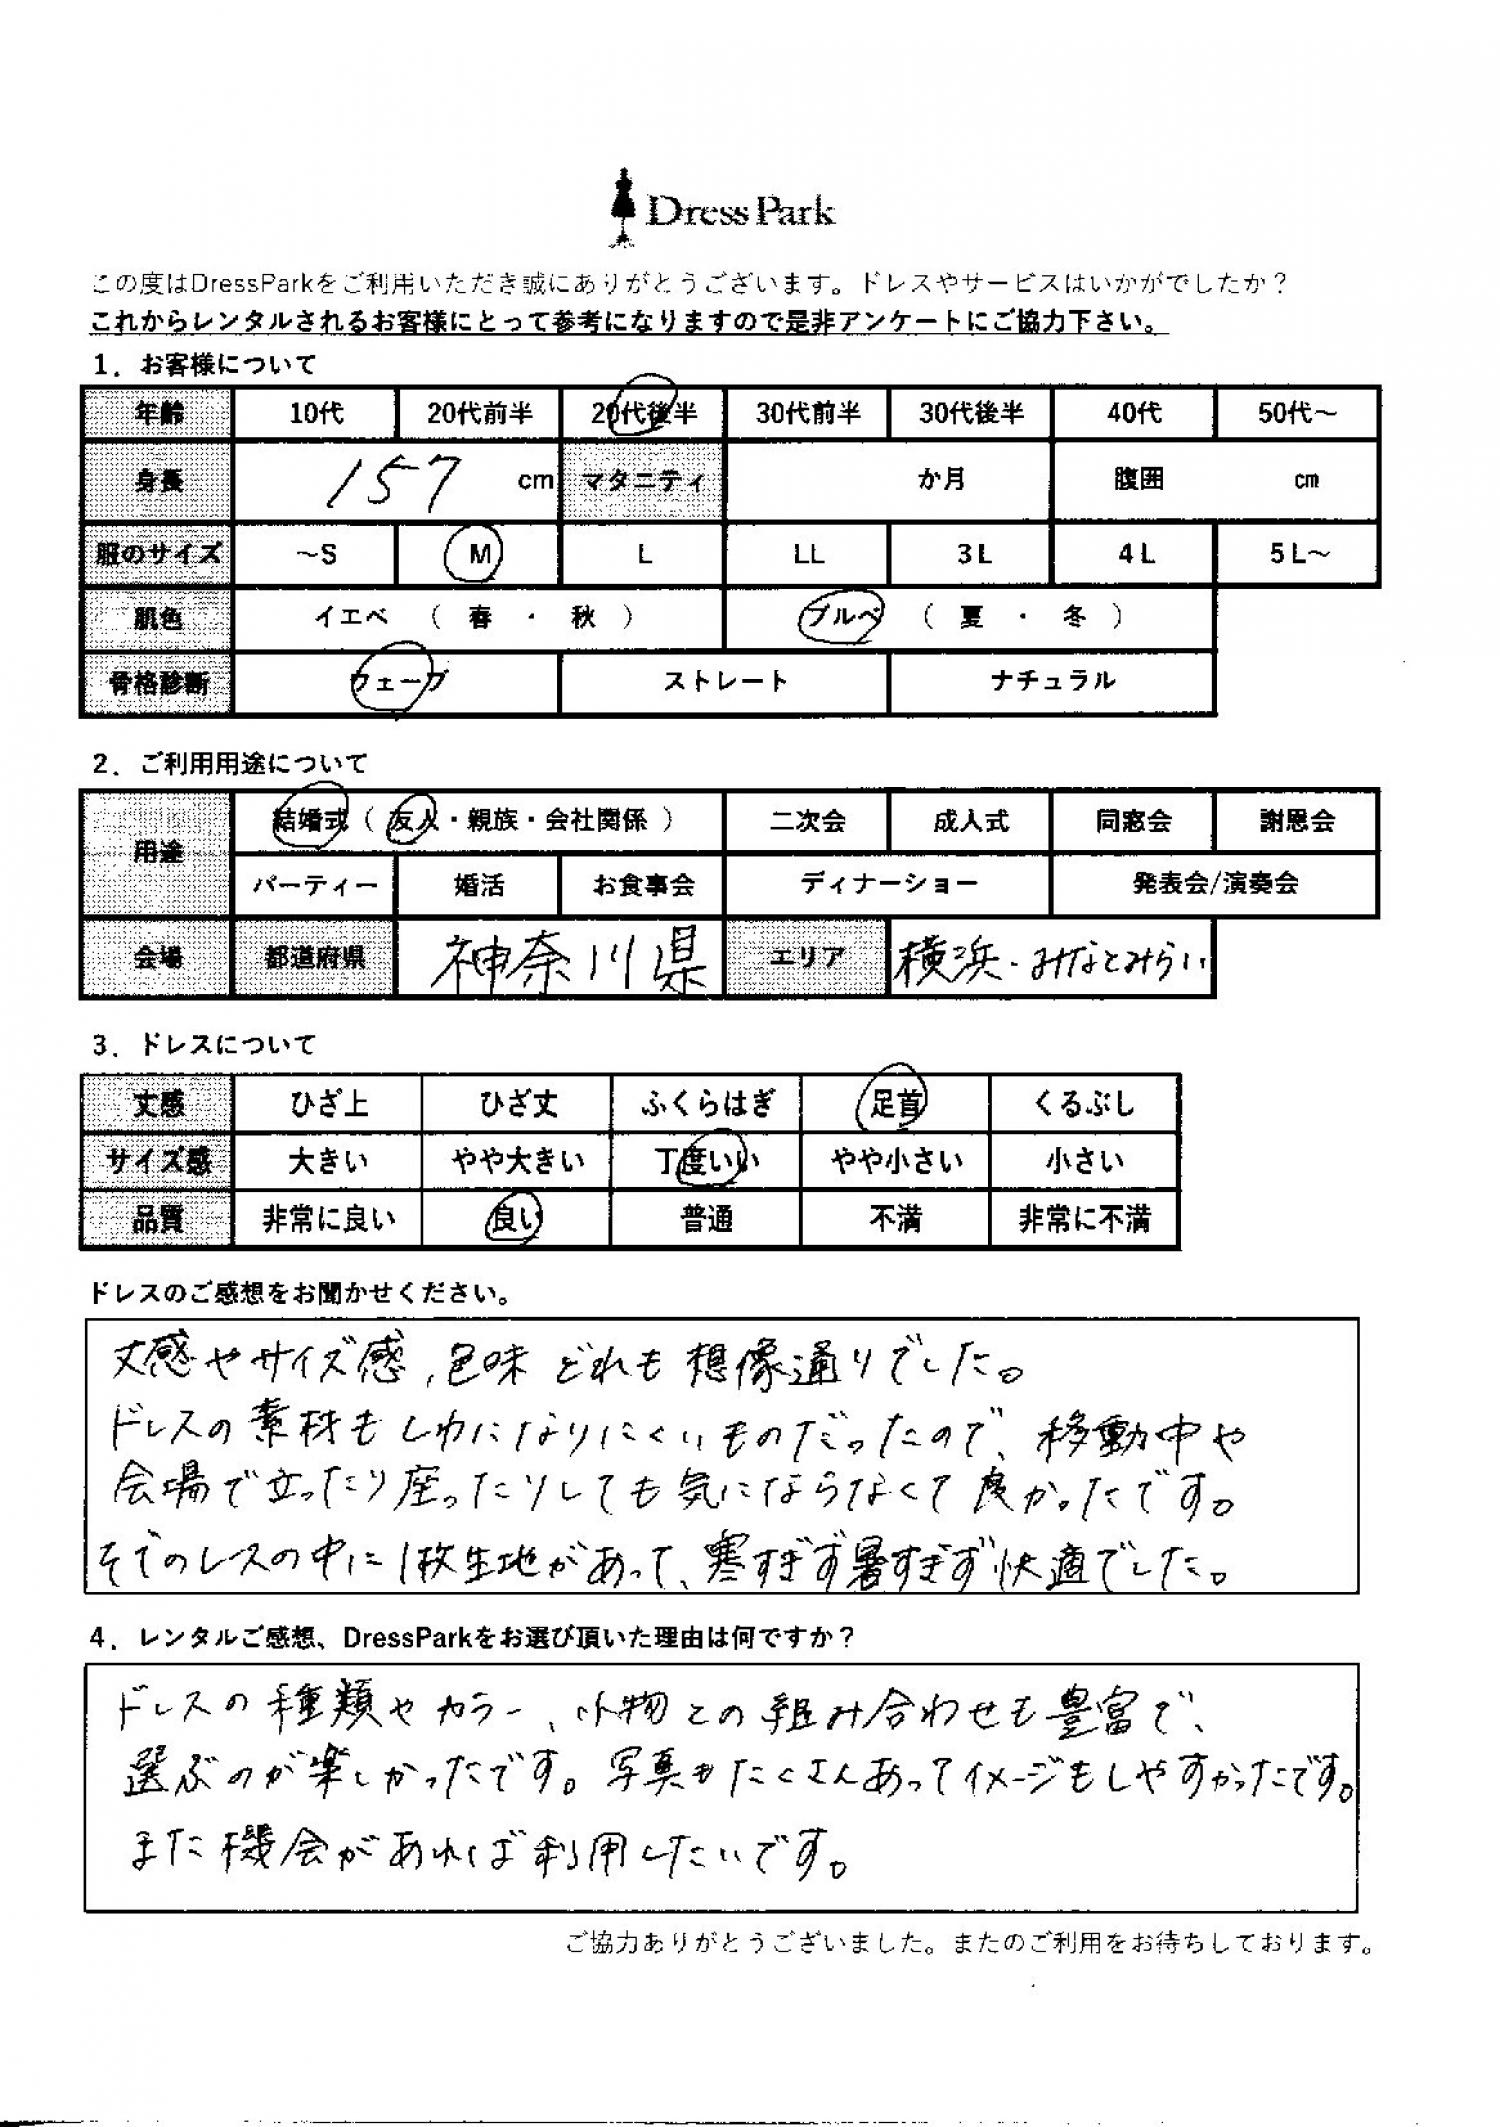 Dress Park
この度はDressParkをご利用いただき誠にありがとうございます。ドレスやサービスはいかがでしたか？
これからレンタルされるお客様にとって参考になりますので是非アンケートにご協力下さい。
1．お客様について
年齢 10代 20代前半 20代後半 30代前半 30代後半 40代 50代～
身長 157 cm マタニティ か月 腹囲 cm
服のサイズ ～S M L LL 3L 4L 5L～
肌色 イエベ （ 春 ・ 秋 ） ブルベ （ 夏 ・ 冬 ）
骨格診断 ウェーブ ストレート ナチュラル
2．ご利用用途について
用途 結婚式（ 友人・親族・会社関係 ） 二次会 成人式 同窓会 謝恩会
パーティー 婚活 お食事会 ディナーショー 発表会/演奏会
会場 都道府県 神奈川県 エリア 横浜・みなとみらい
3．ドレスについて
丈感 ひざ上 ひざ丈 ふくらはぎ 足首 くるぶし
サイズ感 大きい やや大きい 丁度いい やや小さい 小さい
品質 非常に良い 良い 普通 不満 非常に不満
ドレスのご感想をお聞かせください。
丈感やサイズ感、色味 どれも想像通りでした。
ドレスの素材もしわになりにくいものだったので、移動中や
会場で立ったり座ったりしても気にならなくて良かったです。
そでのレスの中に1枚生地があって、寒すぎず暑すぎず快適でした。
4．レンタルご感想、DressParkをお選び頂いた理由は何ですか？
ドレスの種類やカラー、小物との組み合わせも豊富で、
選ぶのが楽しかったです。写真もたくさんあってイメージもしやすかったです。
また機会があれば利用したいです。
ご協力ありがとうございました。またのご利用をお待ちしております。